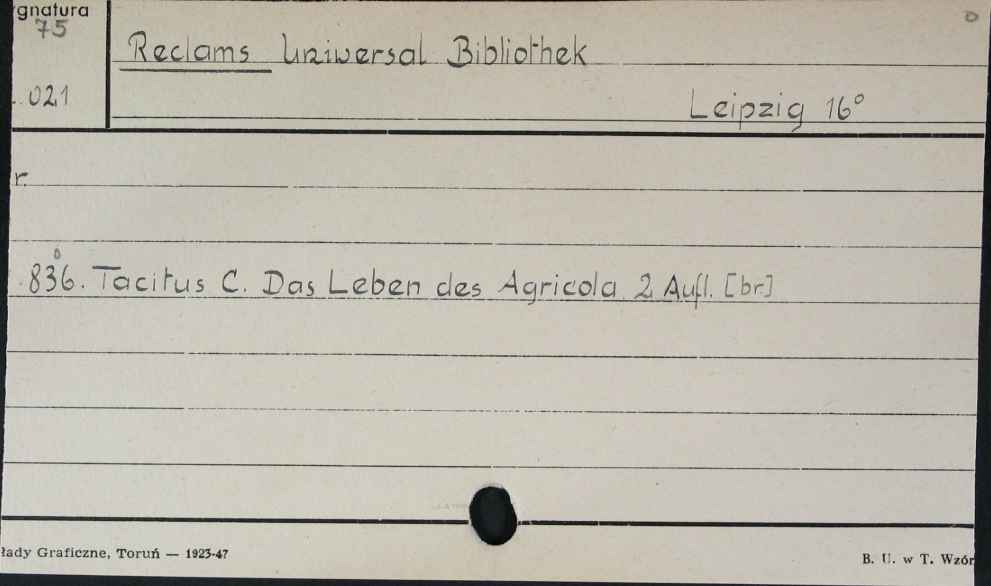 gnatura
75
021
Reclams Uniwersal Bibliothek
Leipzig 16°
r.
836. Tacitus C. Das Leben des Agricola 2 Aufl. [br]
łady Graficzne, Toruń — 1923-47
B. U. w T. Wzór